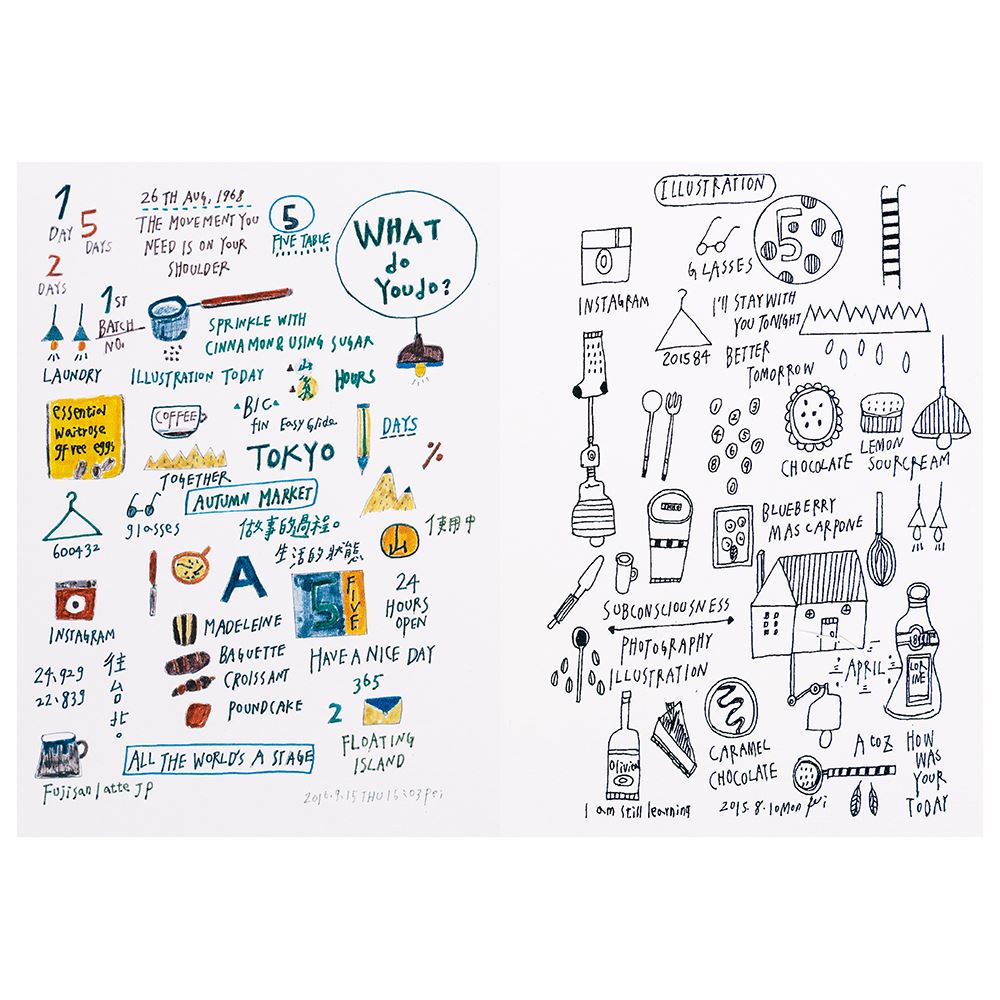 1
DAY
5
DAYS
2
DAYS
26 TH AUG, 1968
THE MOVEMENT YOU
NEED IS ON YOUR
SHOULDER
5
FIVE TABLE
WHAT
do
You do?
1ST
BATCH
NO.
SPRINKLE WITH
CINNAMON & USING SUGAR
LAUNDRY
ILLUSTRATION TODAY
山
HOURS
essential
waitrose
gfree eggs
COFFEE
BIG
fIN Easy Glide
DAYS
TOKYO
%
TOGETHER
AUTUMN MARKET
600432
glasses
做事的過程。
生活的狀態
山
使用中
A
5
FIVE
24
HOURS
OPEN
INSTAGRAM
MADELEINE
BAGUETTE
CROISSANT
POUNDCAKE
HAVE A NICE DAY
24,929
22.839
往台北。
365
2
FLOATING
ISLAND
ALL THE WORLD'S A STAGE
Fujisan latte JP
ILLUSTRATION
INSTAGRAM
GLASSES
5
I'LL STAY WITH
YOU TONIGHT
201584
BETTER
TOMORROW
CHOCOLATE
LEMON
SOURCREAM
BLUEBERRY
MASCARPONE
SUBCONSLIOUSNESS
PHOTOGRAPHY
ILLUSTRATION
APRIL
8
CARAMEL
CHOCOLATE
A to Z
HOW
WAS
YOUR
TODAY
I am still learning
2015.8.10 MON pei